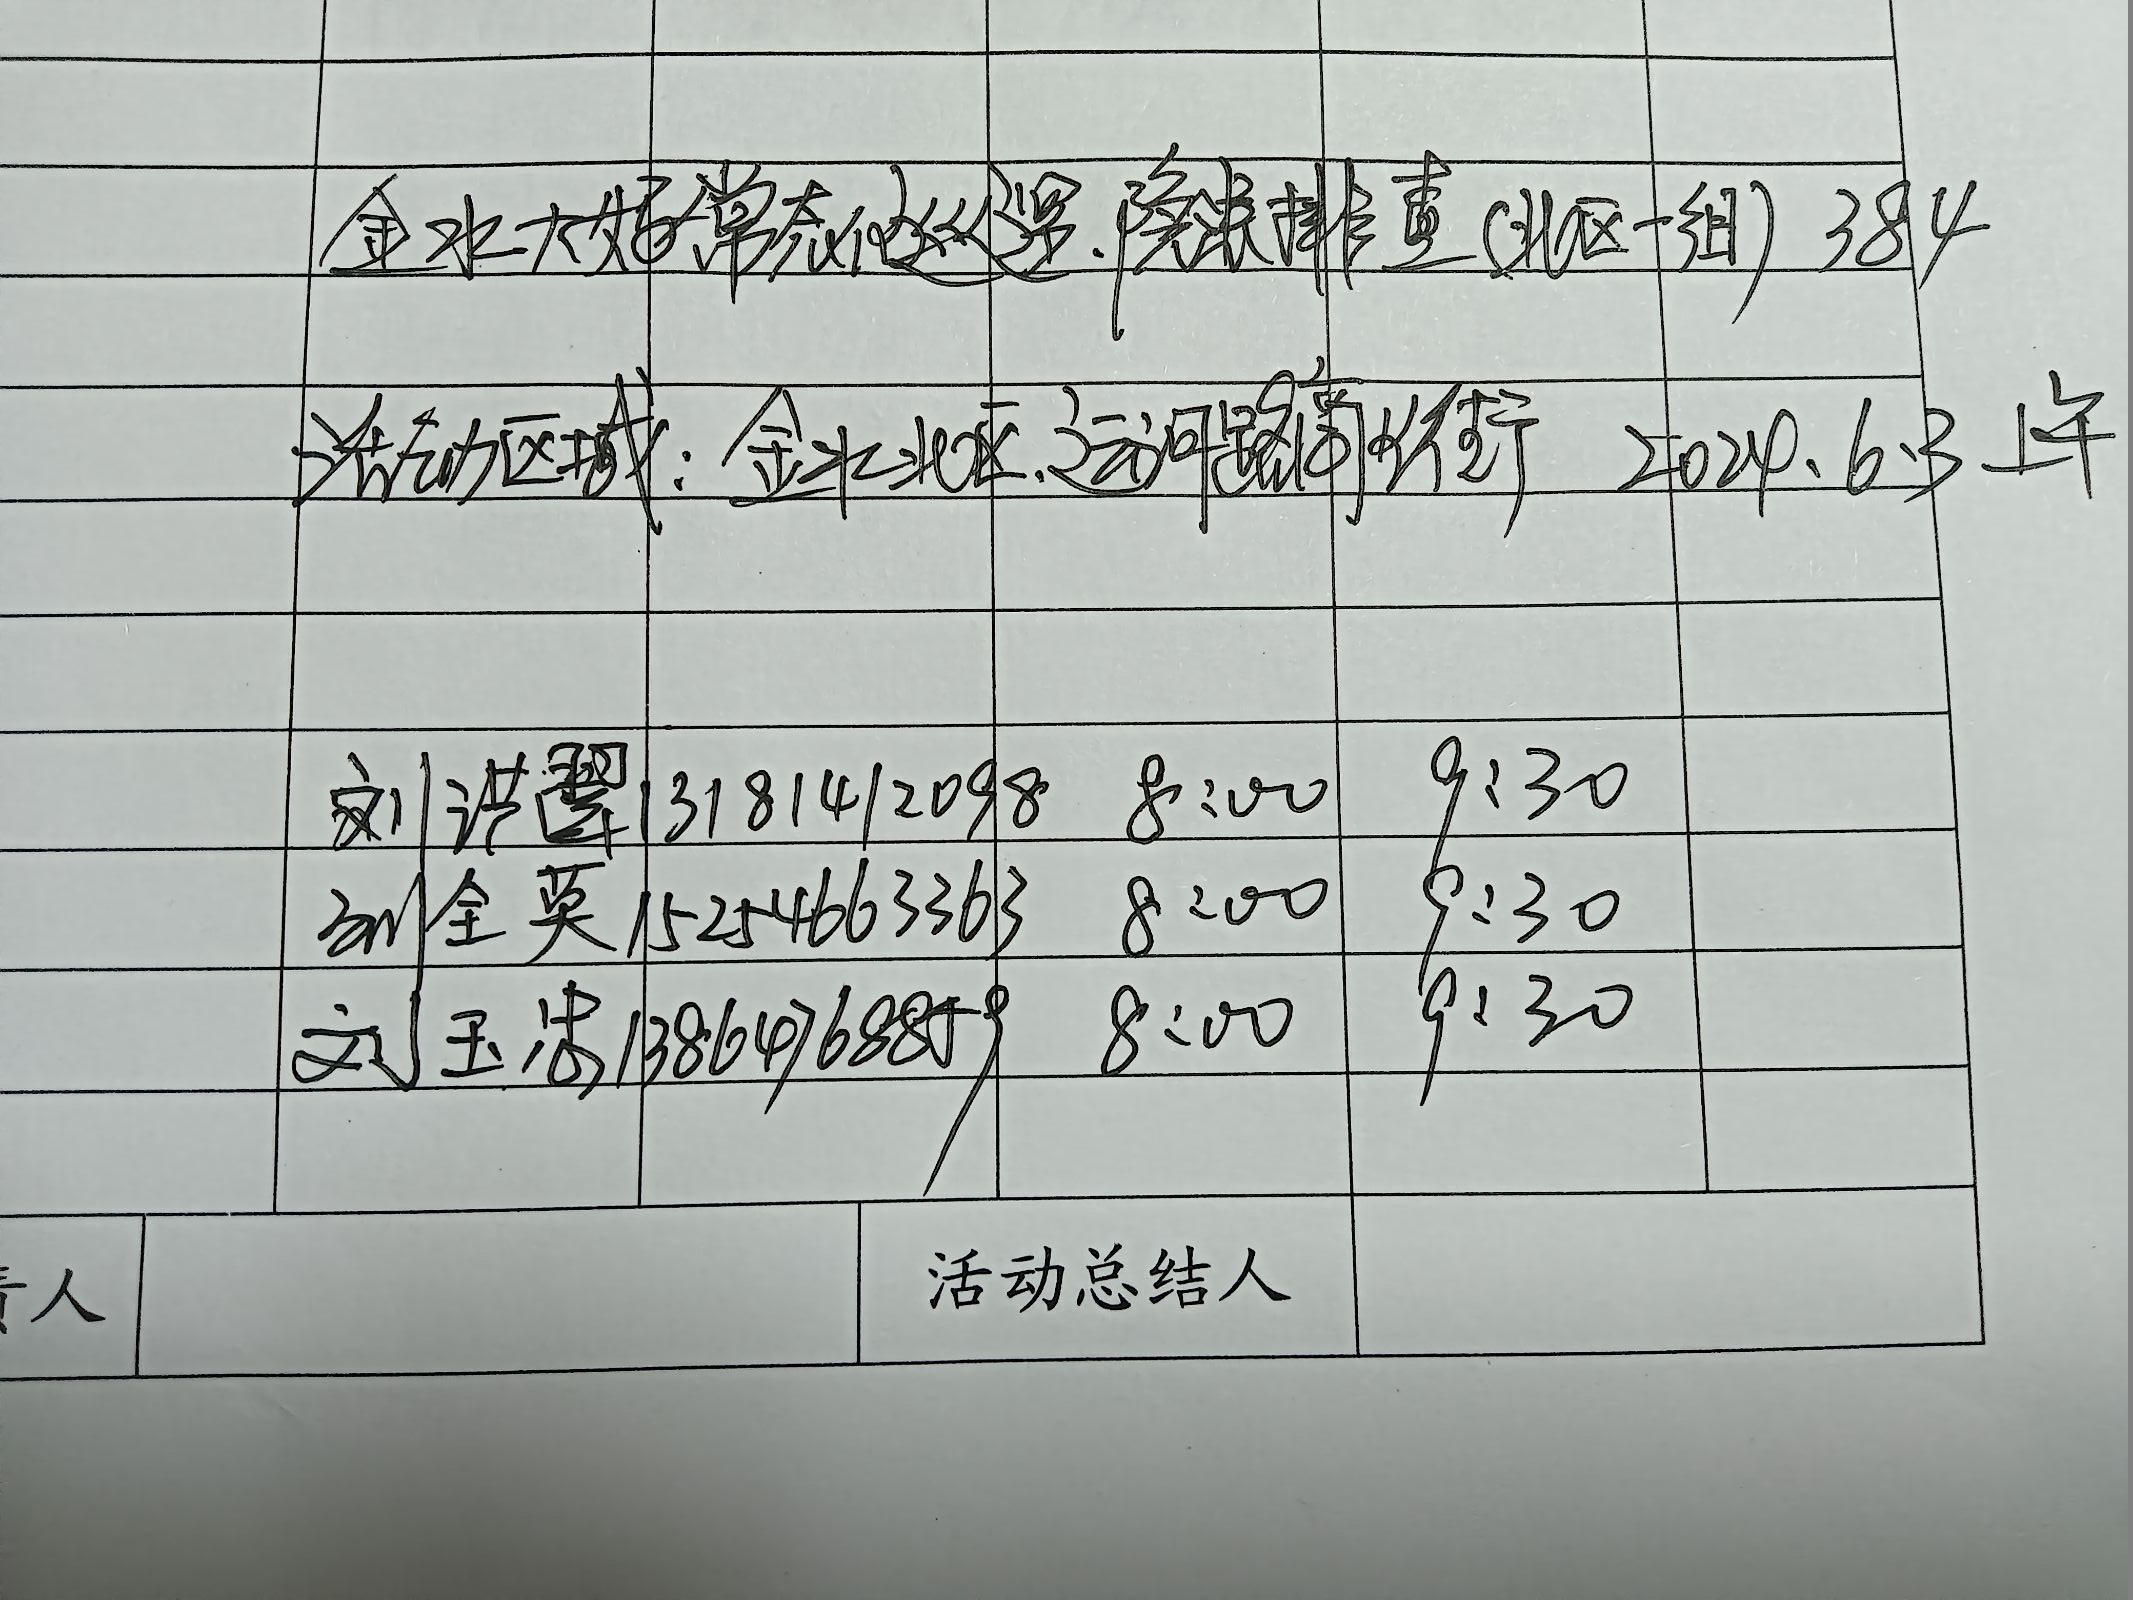 金水大姐常态化巡逻.隐患排查(北区一组) 384
活动区域：金水北区.运河路商业街 2024.6.3上午
刘洪翠 13181412098 8:00 9:30
刘全英 15254663363 8:00 9:30
刘玉洁 13864768859 8:00 9:30
责人 活动总结人